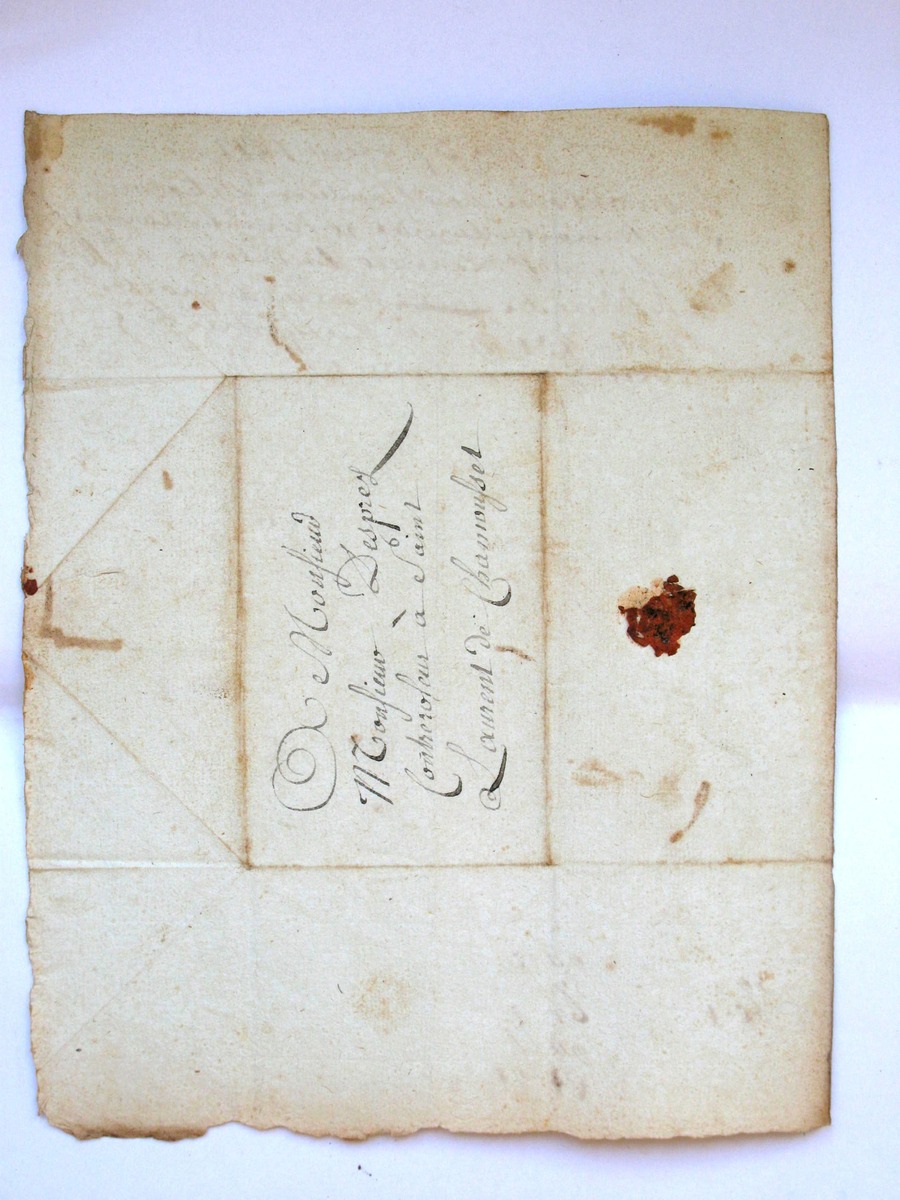 A Monsieur
Monsieur Desprez
Controleur à Saint
Laurent de Chamousset